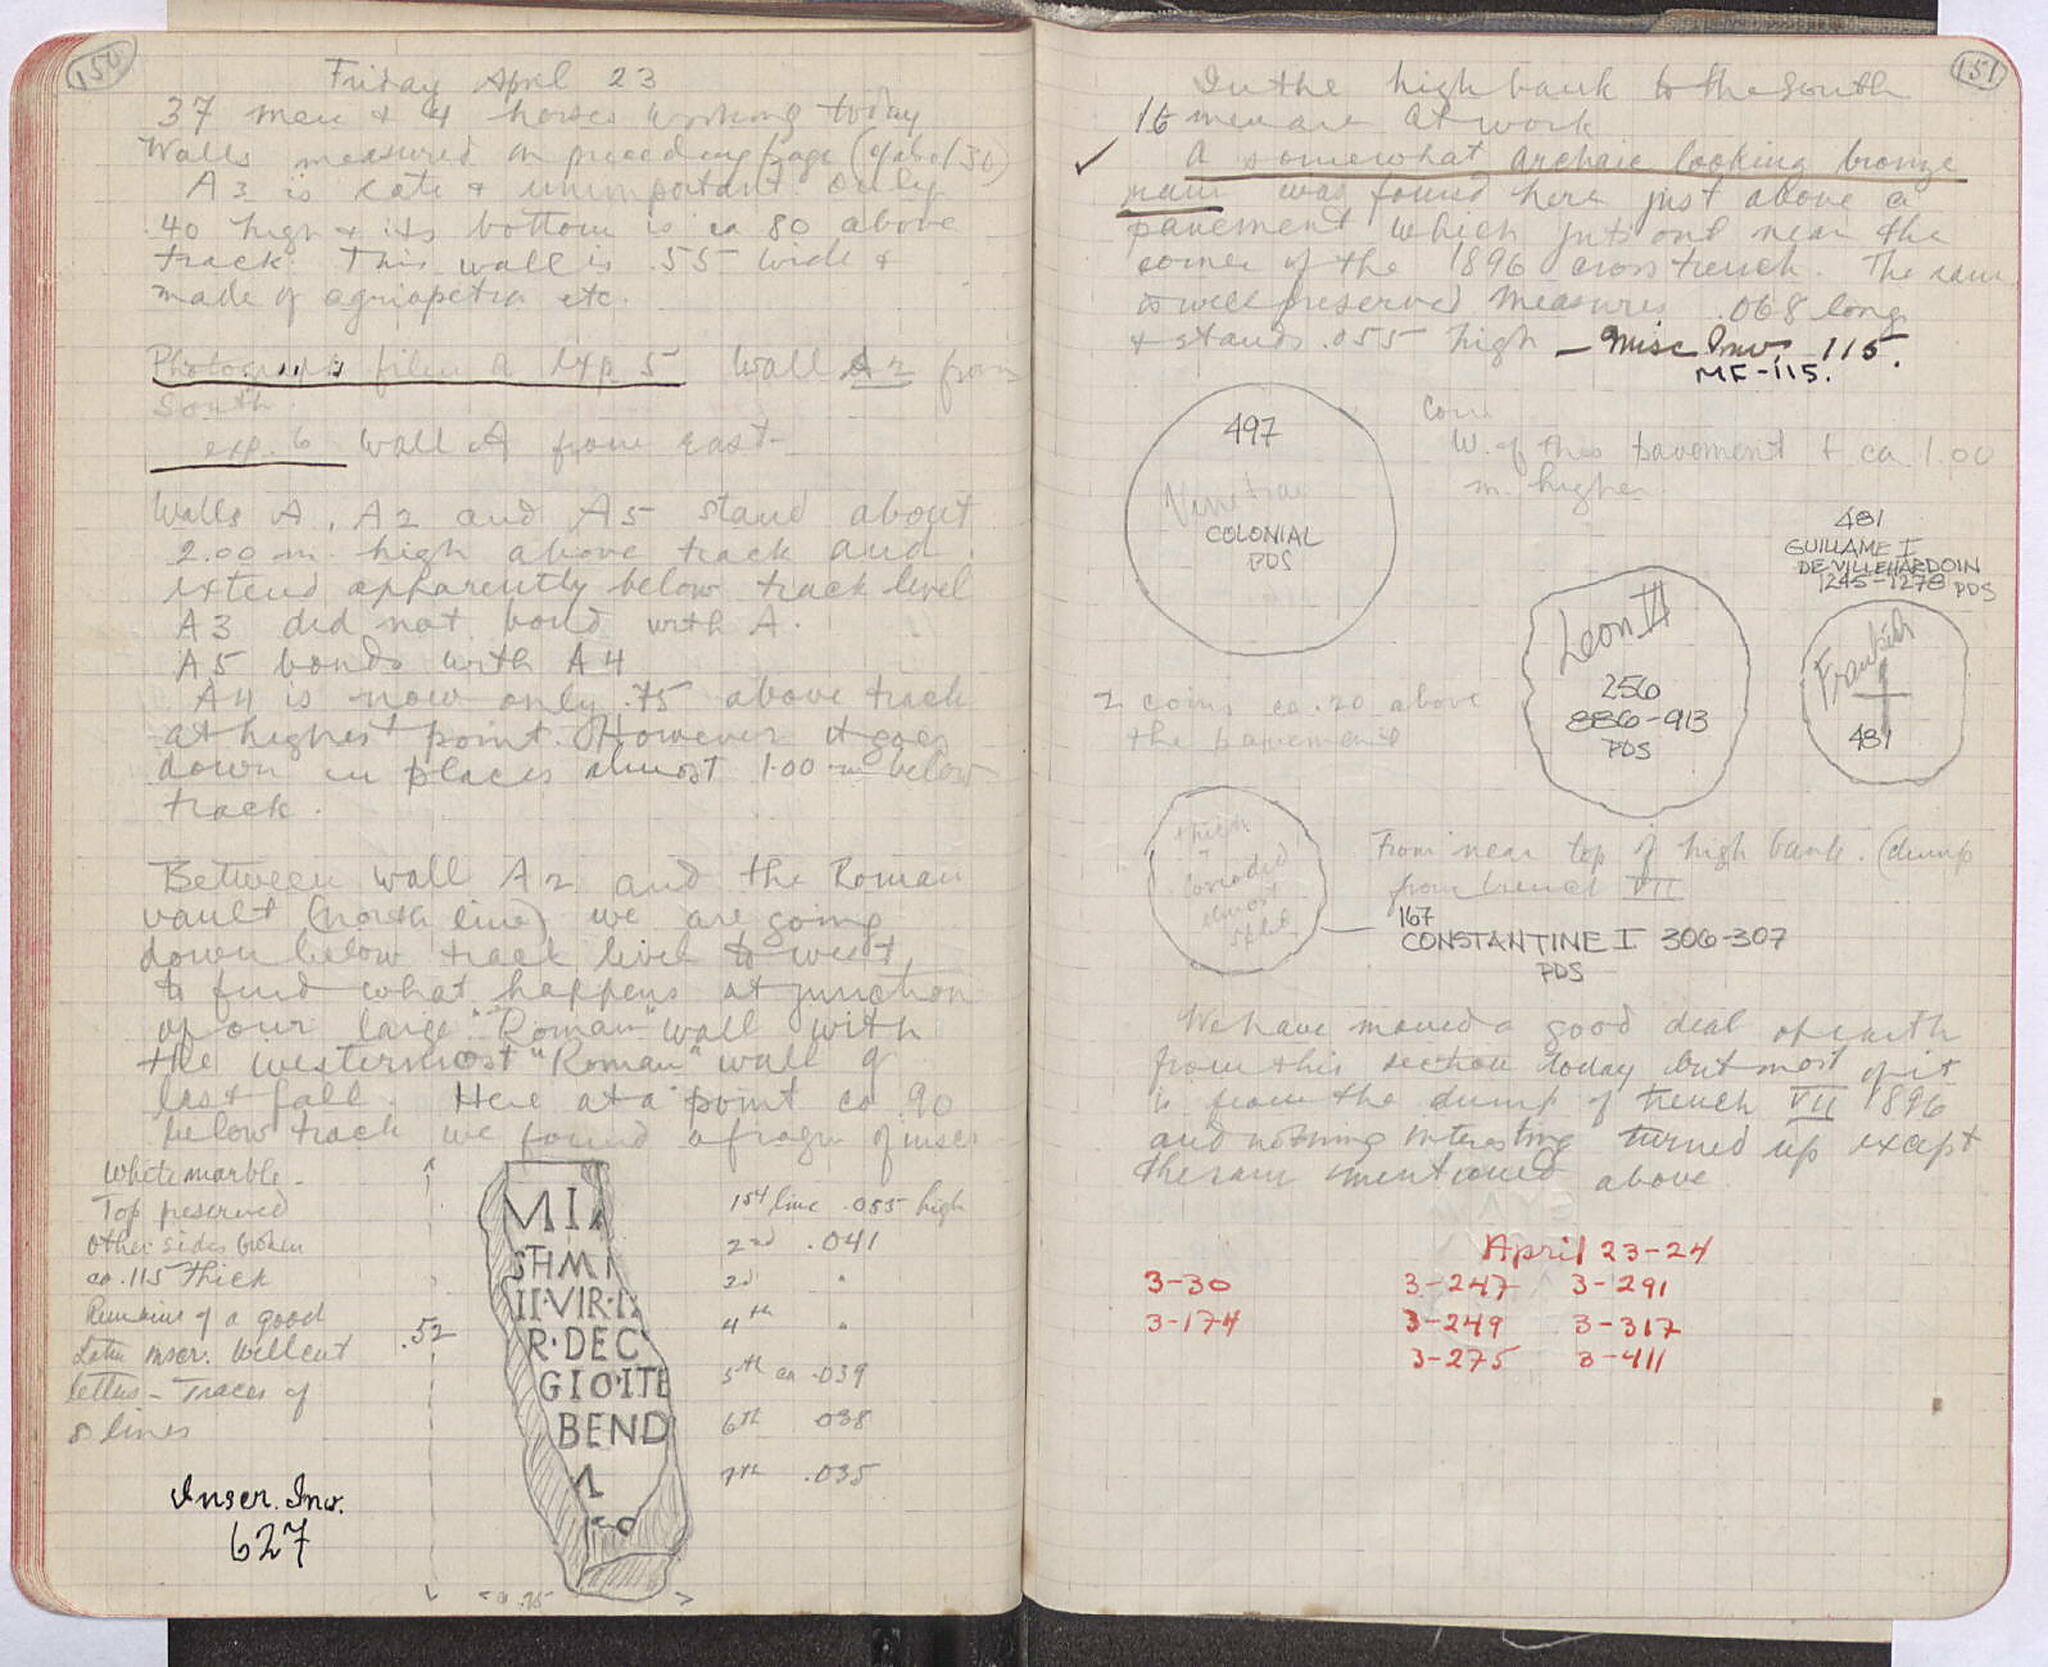 150
Friday April 23
37 men & 4 horses working today
Walls measured on preceding page
A3 is late & unimportant only
.40 high & its bottom is ca 80 above
track. This wall is .55 wide &
made of agriopetra etc.
Photograph film A exp 5 Wall A2 from
South
exp. 6 Wall A from east
Walls A, A2 and A5 stand about
2.00 m. high above track and
extend apparently below track level
A3 did not bond with A.
A5 bonds with A4
A4 is now only .75 above track
at highest point. However it goes
down in places almost 1.00 m below
track.
Between wall A2 and the Roman
vault (north line) we are going
down below track level to west
to find what happens at junction
of our large "Roman" wall with
the westernmost "Roman" wall of
last fall. Here at a point ca .90
below track we found a fragm of inscr
White marble.
Top preserved
Other sides broken
ca .115 thick
Remains of a good
Latin inscr. Well cut
letters - Traces of
8 lines
.52
Inscr. Inv.
627
MIA
STHMI
II·VIR·I
R·DEC
GIO·ITE
BEND
1st line .055 high
2nd .041
3d "
4th "
5th ca .039
6th .038
7th .035
151
In the high bank to the South
16 men are at work
A somewhat archaic looking bronze
ram was found here just above a
pavement which juts out near the
corner of the 1896 cross trench. The ram
is well preserved measures .068 long
& stands .055 high - Misc Inv. 115.
MF-115.
497
Venetian
COLONIAL
PDS
Coin
W. of this pavement & ca 1.00
m. higher
481
GUILLAME I
DE VILLEHARDOIN
1245-1278 PDS
Leon VI
256
886-913
PDS
Frankish
481
2 coins ca .20 above
the pavement
thick
corroded
almost
split
From near top of high bank. (dump
from trench VII
167
CONSTANTINE I 306-307
PDS
We have moved a good deal of earth
from this section today but most of it
is from the dump of trench VII 1896
and nothing interesting turned up except
the ram mentioned above
April 23-24
3-30 3-247 3-291
3-174 3-249 3-317
3-275 3-411